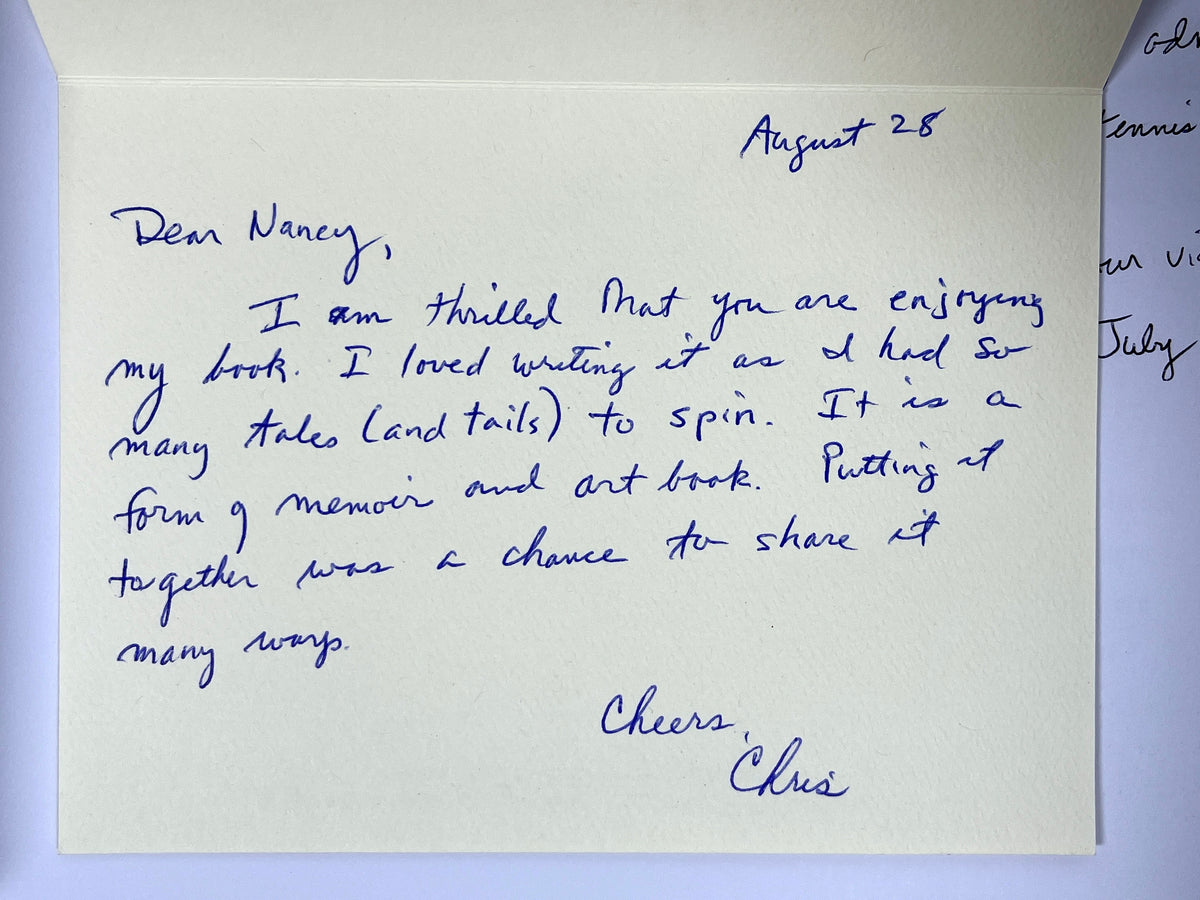 August 28
Dear Nancy,
I am thrilled that you are enjoying
my book. I loved writing it as I had so
many tales (and tails) to spin. It is a
form of memoir and art book. Putting it
together was a chance to share it
many ways.
Cheers,
Chris
tennis
July